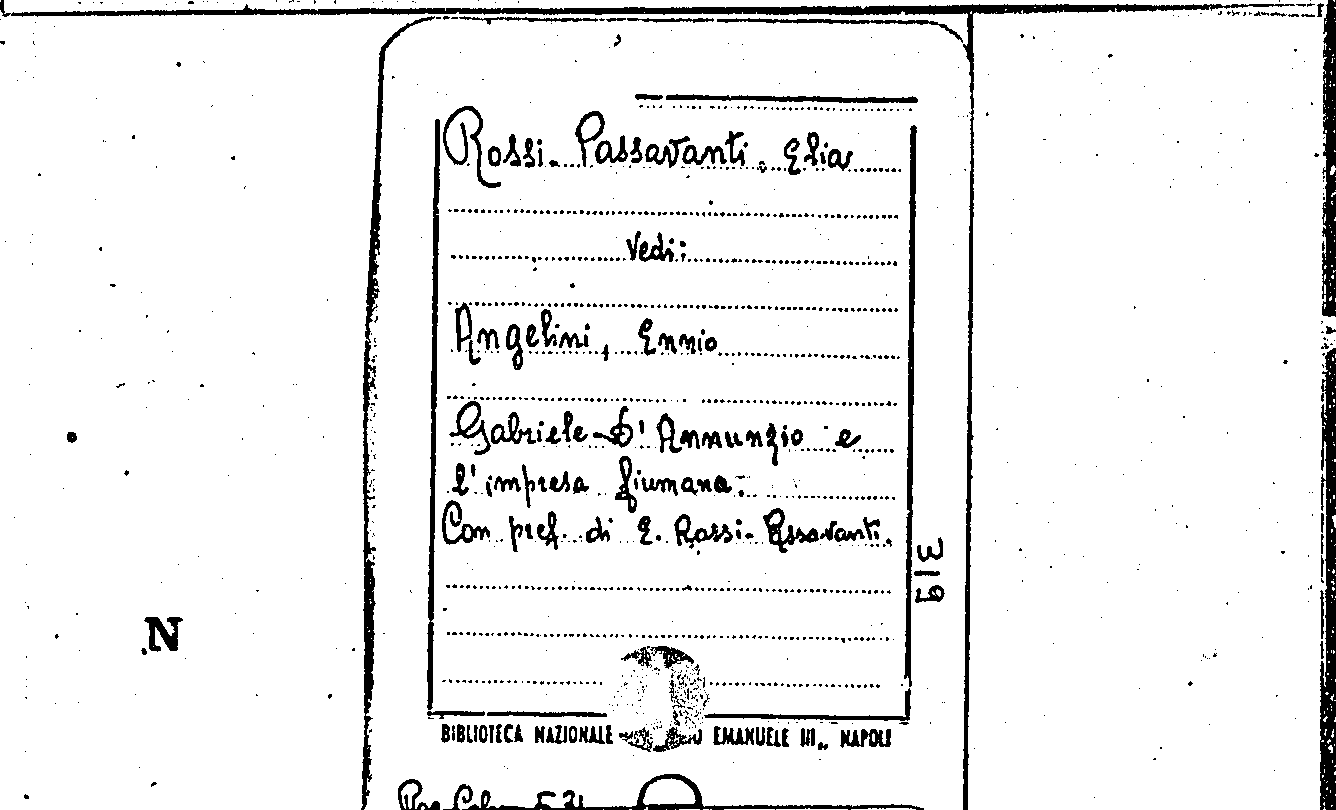 Rossi-Passavanti, Elia
Vedi:
Angelini, Ennio
Gabriele D'Annunzio e
l'impresa fiumana.
Con pref. di E. Rossi-Passavanti.
N
BIBLIOTECA NAZIONALE EMANUELE III,, NAPOLI